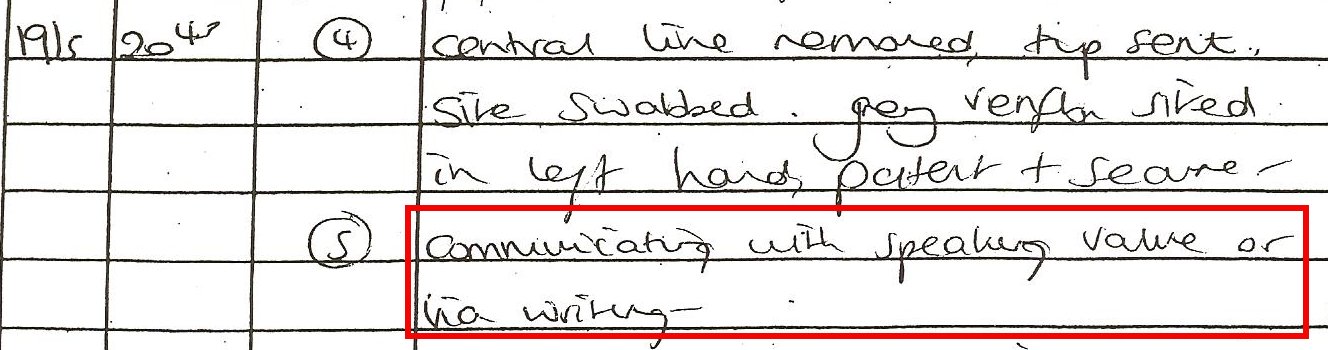 19/5 20⁴⁵ ④ central line removed, tip sent,
site swabbed. grey venflon sited
in left hand, patent + secure -
⑤ communicating with speaking valve or
via writing -